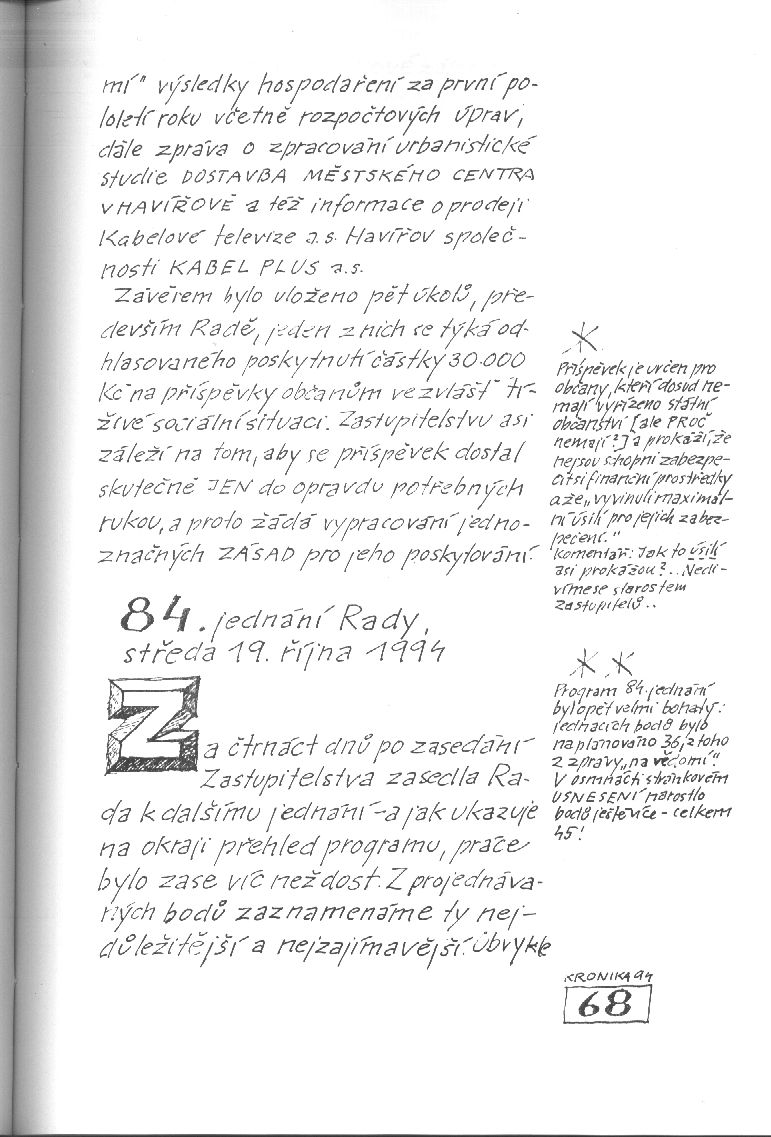 mí" výsledky hospodaření za první po-
loletí roku včetně rozpočtových úprav,
dále zpráva o zpracování urbanistické
studie DOSTAVBA MĚSTSKÉHO CENTRA
V HAVÍŘOVĚ a též informace o prodeji
Kabelové televize a.s. Havířov společ-
nosti KABEL PLUS a.s.
Závěrem bylo uloženo pět úkolů, pře-
devším Radě, jeden z nich se týká od-
hlasovaného poskytnutí částky 30.000
Kč na příspěvky občanům ve zvlášť tí-
živé sociální situaci. Zastupitelstvu asi
záleží na tom, aby se příspěvek dostal
skutečně JEN do opravdu potřebných
rukou, a proto žádá vypracování jedno-
značných ZÁSAD pro jeho poskytování.
84. jednání Rady,
středa 19. října 1994
Za čtrnáct dnů po zasedání
Zastupitelstva zasedla Ra-
da k dalšímu jednání - a jak ukazuje
na okraji přehled programu, práce
bylo zase víc než dost. Z projednáva-
ných bodů zaznamenáme ty nej-
důležitější a nejzajímavější. Obvykle
*
Příspěvek je určen pro
občany, kteří dosud ne-
mají vyřízeno státní
občanství [ale PROČ
nemají?] a prokáží, že
nejsou schopni zabezpe-
čit si finanční prostředky
a že „vyvinuli maximál-
ní úsilí pro jejich zabez-
pečení."
Komentář: Jak to úsilí
asi prokážou?.. Nedi-
víme se starostem
zastupitelů..
* *
Program 84. jednání
byl opět velmi bohatý:
jednacích bodů bylo
naplánováno 36, z toho
2 zprávy „na vědomí."
V osmnáctistránkovém
USNESENÍ narostlo
bodů ještě více - celkem
45!
KRONIKA 94
68